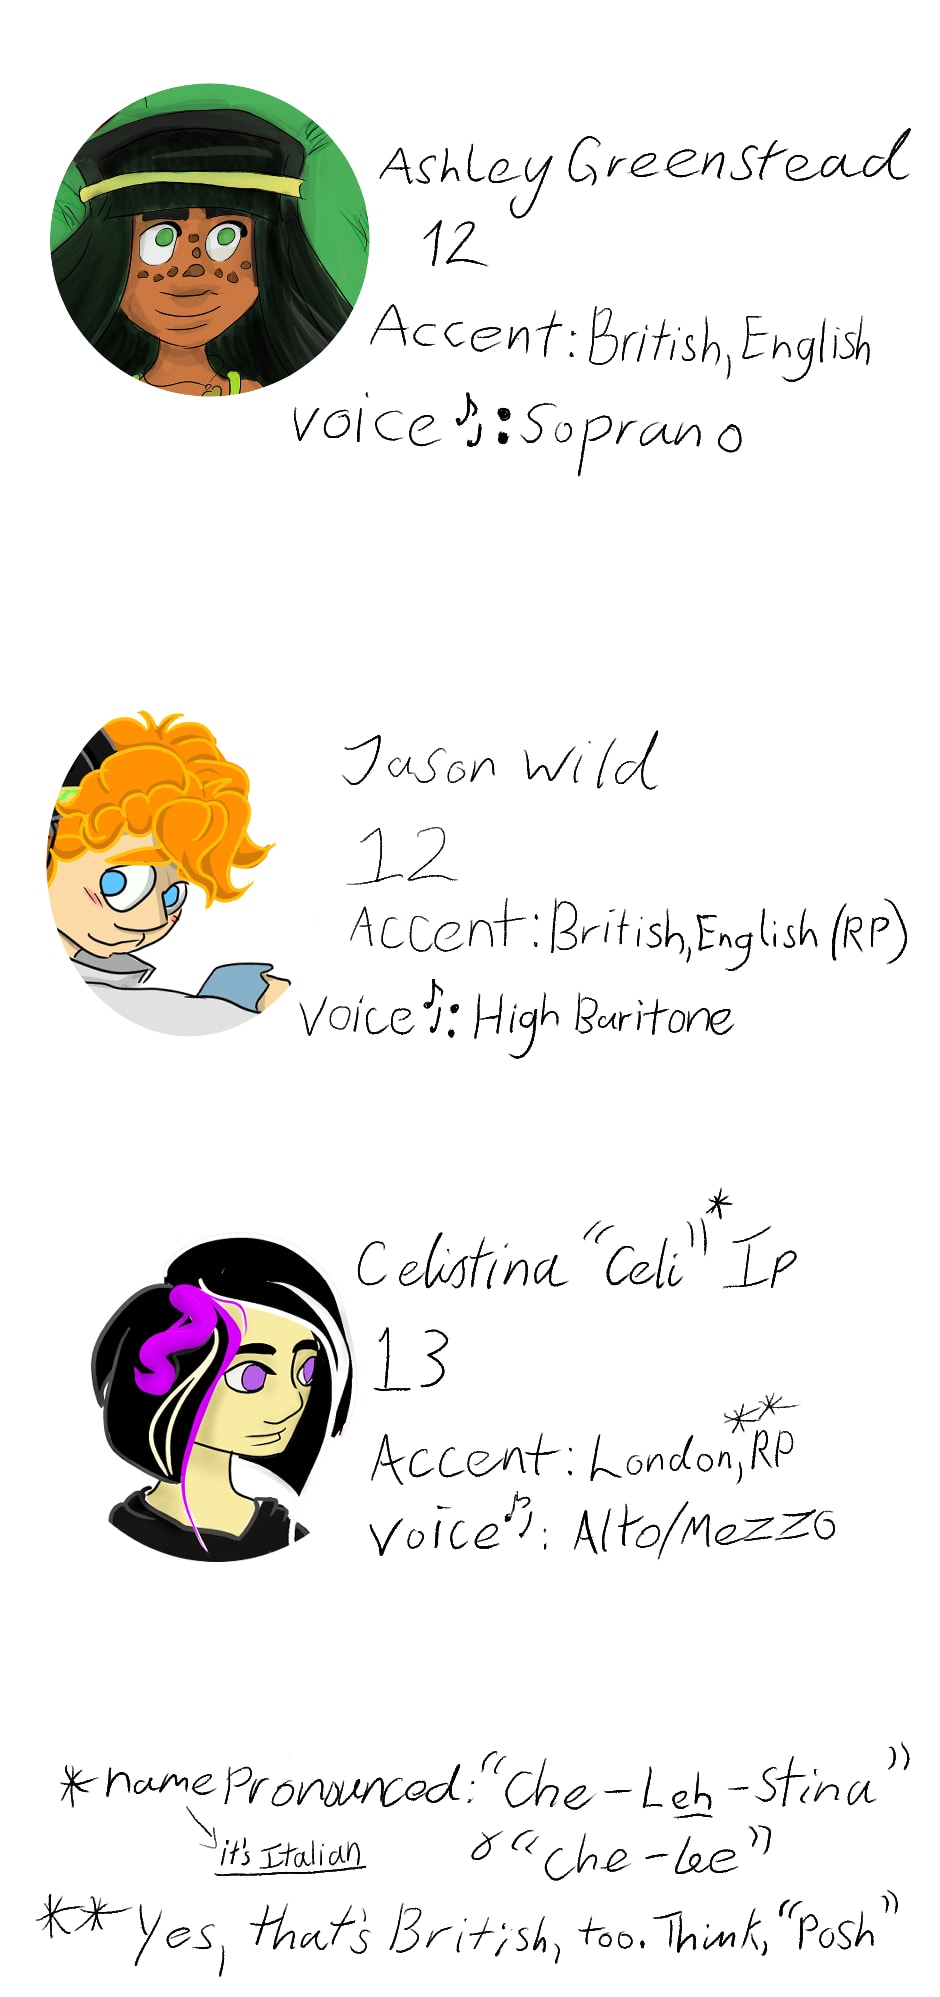 Ashley Greenstead
12
Accent: British, English
voice♪♪: Soprano
Jason Wild
12
Accent: British, English (RP)
voice♪♪: High Baritone
Celistina "Celi"* Ip
13
Accent: London, RP**
voice♪♪: Alto/Mezzo
*name Pronounced: "Che-Leh-stina"
it's Italian
& "Che-Lee"
**Yes, that's British, too. Think, "Posh"